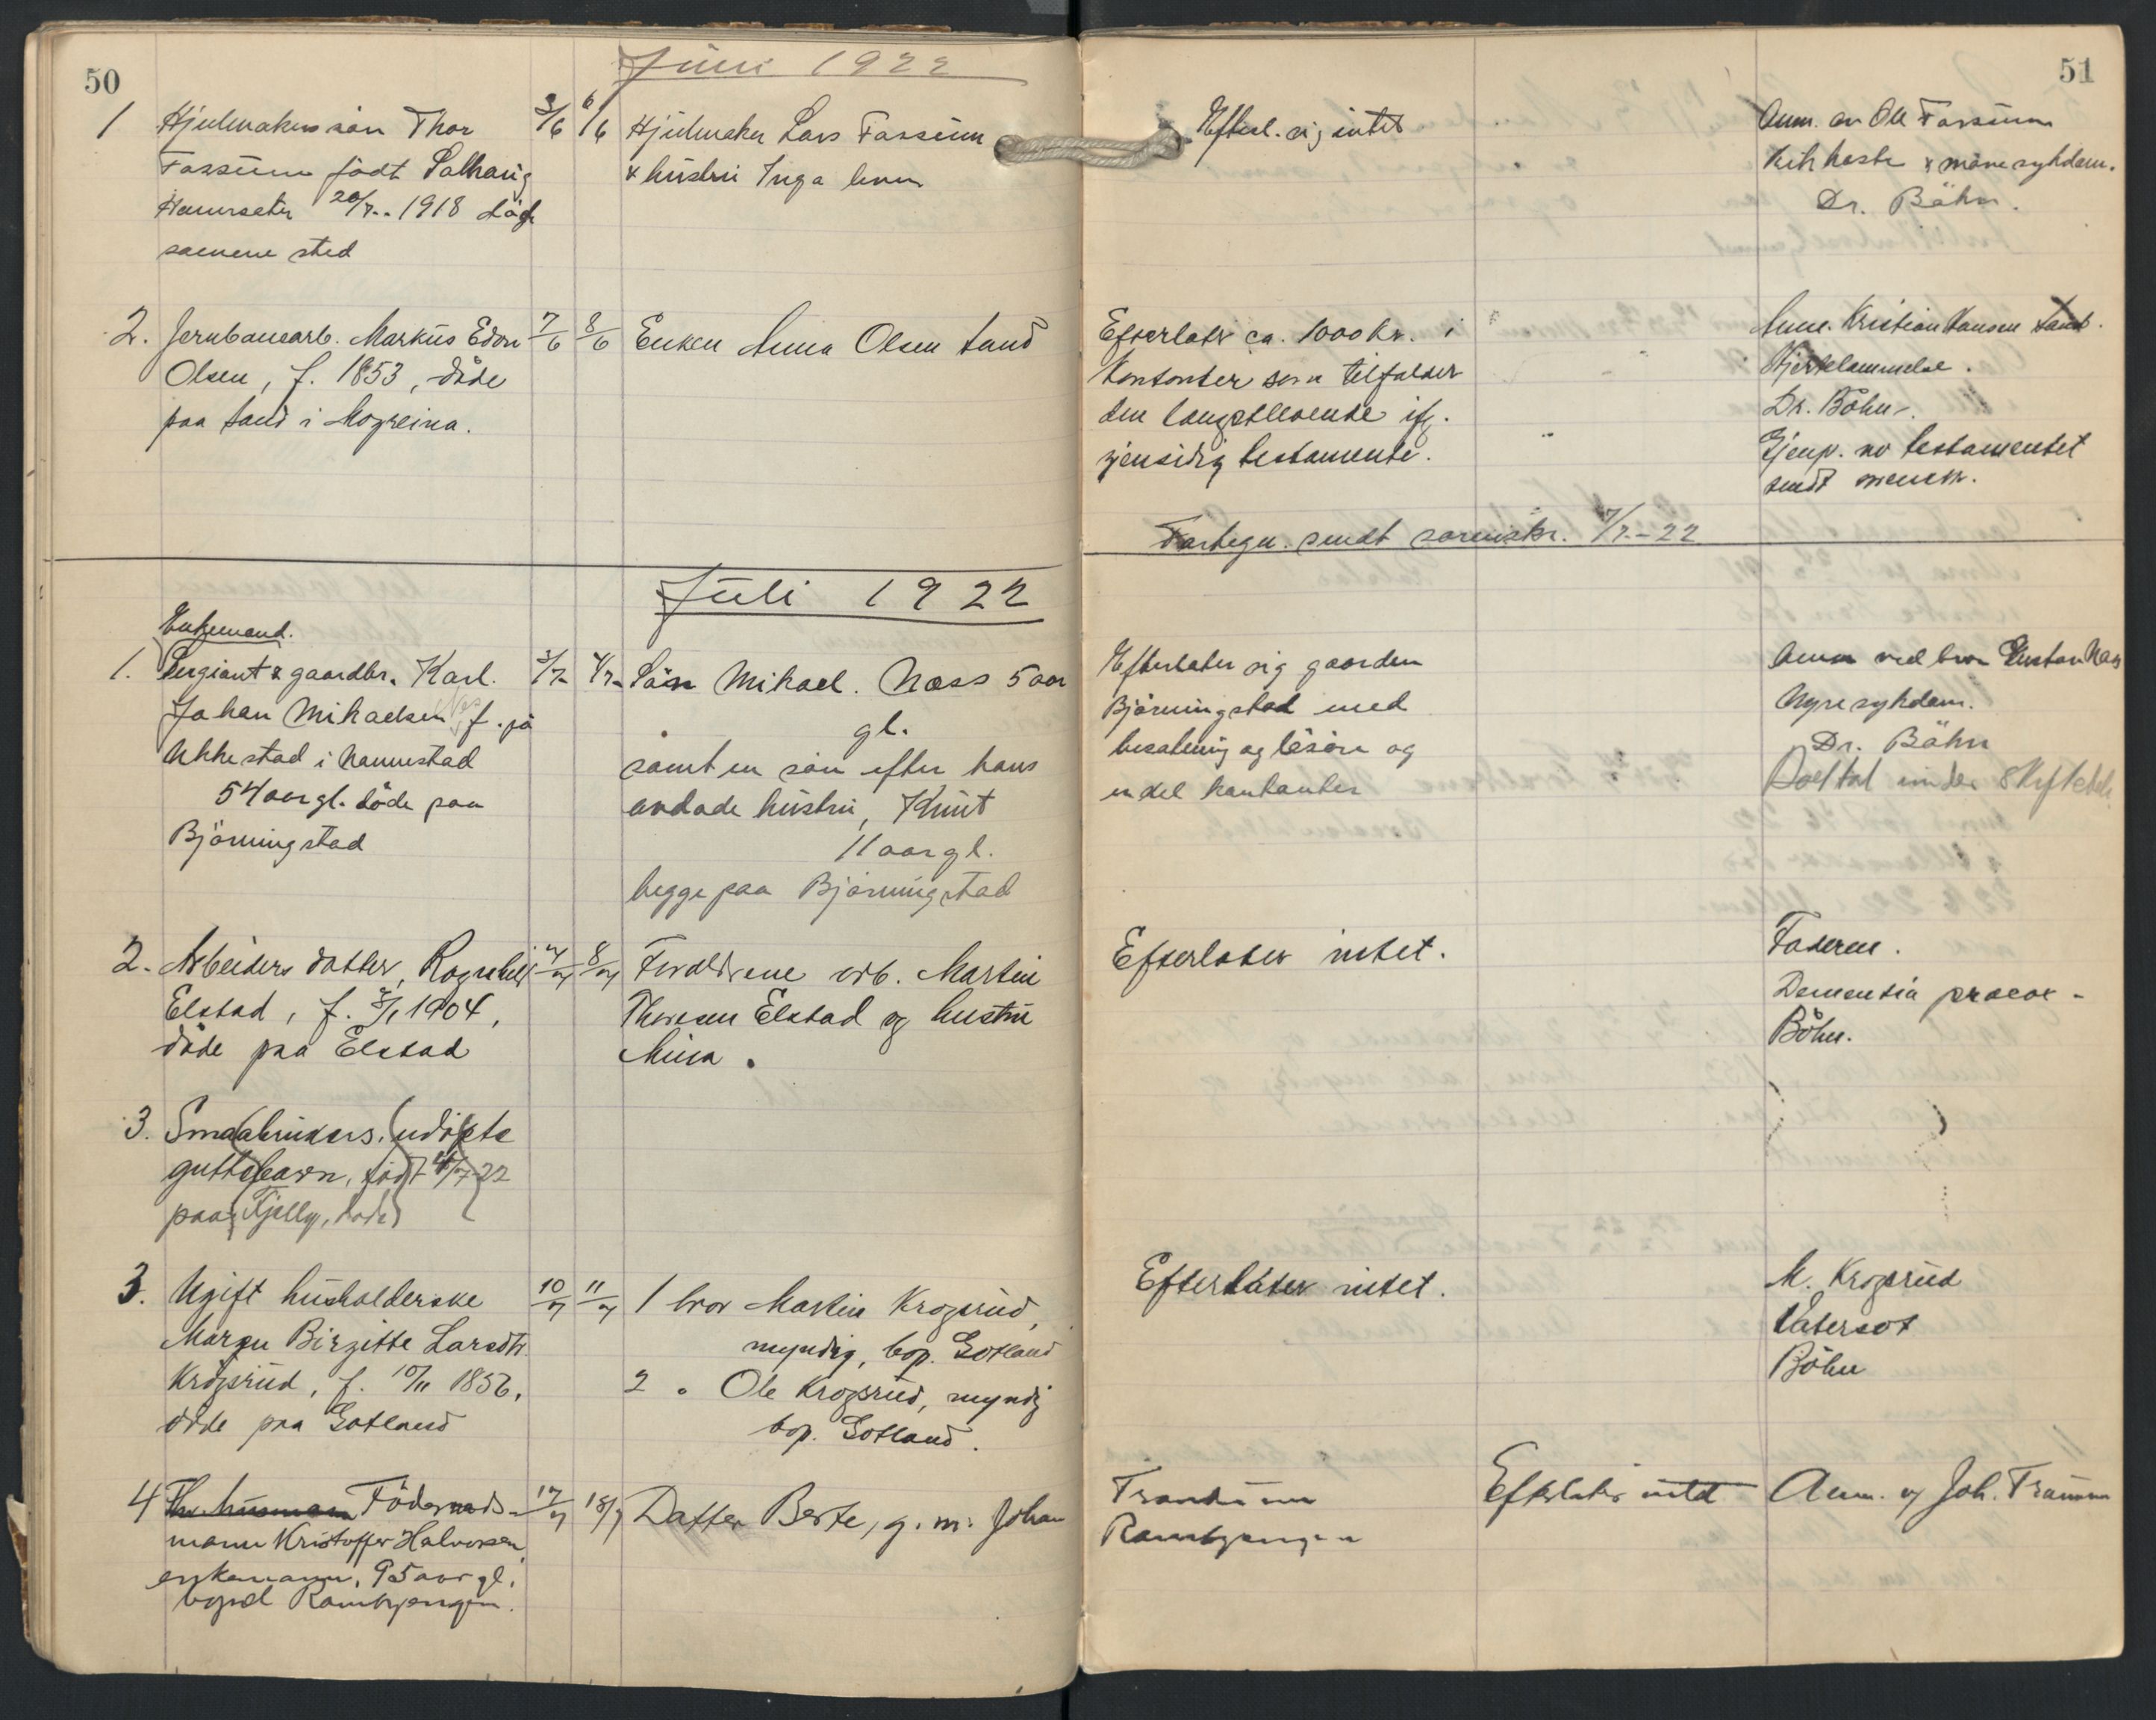 50
Juni 1922
1
Hjulmakers sön Thor
Fossum födt Solhaug
20/7.. 1918 döde
samme sted
3/6
6/6
Hjulmaker Lars Fossum
& hustru Inga
2.
Jernbanearb. Markus
Olsen, f. 1853, döde
paa Sand i Mogreina.
7/6
8/6
Enken Anna Olsen Sand
Juli 1922
Enkemand.
1.
Sergiant & gaardbr. Karl.
Johan Mikaelsen Nes f. på
Ukkestad i Nannestad
54 aar gl. döde paa
Björningstad
3/7
4/7
Sön Mikael. Næss 5 aar
gl.
samt en sön efter hans
avdøde hustru, Knut
11 aar gl.
begge paa Björningstad
2.
Arbeiders datter, Ragnhild
Elstad, f. 1904,
döde paa Elstad
4/7
8/7
Foreldrene arb. Martin
Thoresen Elstad og hustru
Mina.
3.
Smaabrukers, udöpte
guttebarn, födt 4/7-22
paa Fjelly, döde
3.
Ugift husholderske
Maren Birgitte Larsdtr.
Krogsrud, f. 10/11 1856,
döde paa Gotland
10/7
11/7
1 bror Martin Krogsrud,
myndig, bop. Gotland
2 " Ole Krogsrud, myndig
bop. Gotland.
4
Födernads-
mann Kristoffer Halvorsen,
enkemann, 95 aar gl.
17/7
18/7
Datter Berte, g. m. Johan
51
Efterl. sig intet
Anm. av Ole Fossum
Kikhoste & mavesykdom.
Dr. Böhn.
Efterlater ca. 1000 kr. i
Kontanter som tilfalder
den længstlevende ifg.
gjensidig testamente.
Anm. Kristian Hansen Sand.
Hjertelammelse.
Dr. Böhn.
Gjenp. av testamentet
sendt
Fortegn. sendt sorenskr. 7/7.-22
Efterlater sig gaarden
Björningstad med
besætning og lösöre og
en del kontanter
Anm ved bror Gustav Næs
Nyresykdom.
Dr. Böhn
under Skiftebeh.
Efterlater intet.
Faderen.
Dementia præcox -
Böhn.
Efterlater intet.
M. Krogsrud
Vatersot
Böhn
Trandum
Efterlater intet
Anm. av Joh. Trandum